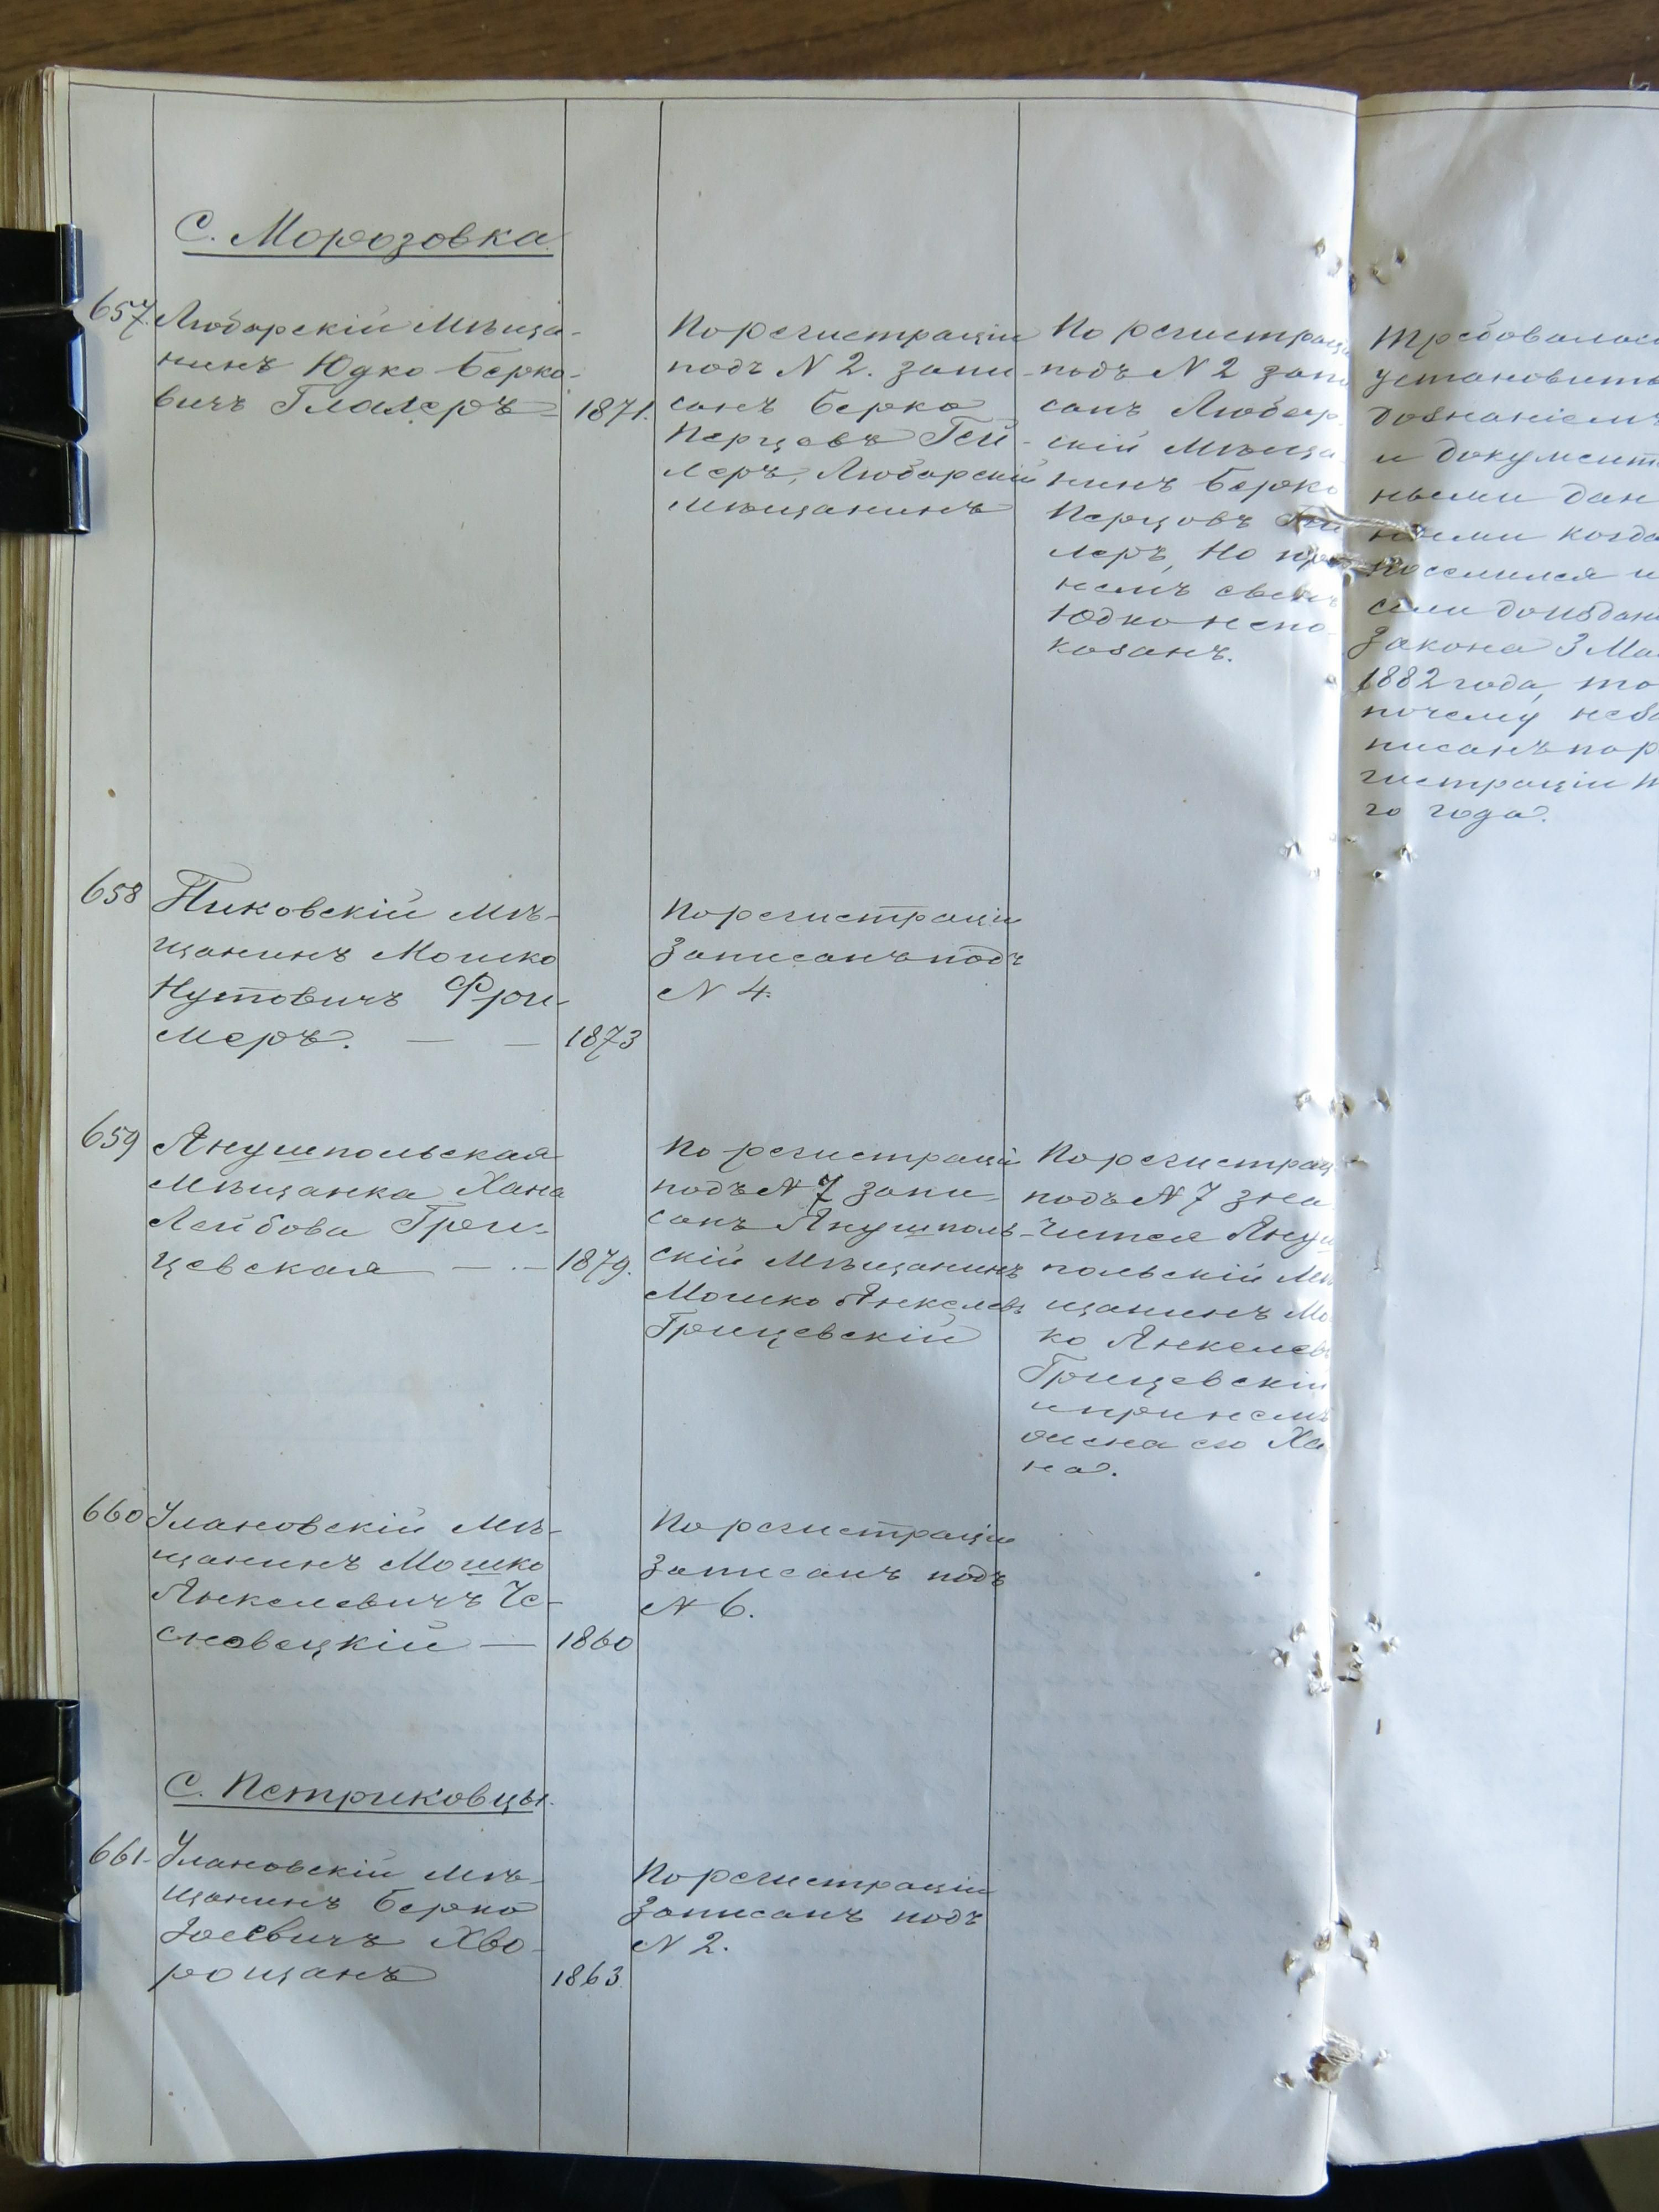 С. Морозовка
657. Любарскій Мѣща-
нинъ Юдко Берко-
вичъ Гламеръ
1871.
По регистраціи
подъ N 2. запи-
санъ Берко
Перцовъ Гей-
леръ, Любарскій
мѣщанинъ
По регистраціи
подъ N 2 запи
санъ Любар
скій Мѣща
нинъ Берко
Перцовъ
леръ, Но при
немъ сынъ
Юдко не по
казанъ.
Требовалось
установить
дознаніемъ
и документ
ными дан
ными когда
поселился и
если до издан
закона 3 Мая
1882 года, то
почему не за
писанъ по ре
гистраціи т
го года.
658 Пиковскій мѣ-
щанинъ Мошко
Нутовичъ Фри-
меръ. — —
1873
По регистраціи
записанъ подъ
N 4.
659 Янушпольская
Мѣщанка Хана
Лейбова Гри-
цевская — . —
1879.
По регистраціи
подъ N 7 запи
санъ Янушполь-
скій Мѣщанинъ
Мошко Янкелевъ
Грицевскій
По регистрац
подъ N 7 зна
чится Януш
польскій Мѣ
щанинъ Мо
ко Янкелевъ
Грицевскій
и при немъ
жена его Ха
на.
660 Улановскій Мѣ-
щанинъ Мошко
Янкелевичъ Че-
сновецкій —
1860
По регистраціи
записанъ подъ
N 6.
С. Петриковцы.
661. Улановскій мѣ-
щанинъ Берко
Іосевичъ Хво-
рощанъ
1863
По регистраціи
записанъ подъ
N 2.